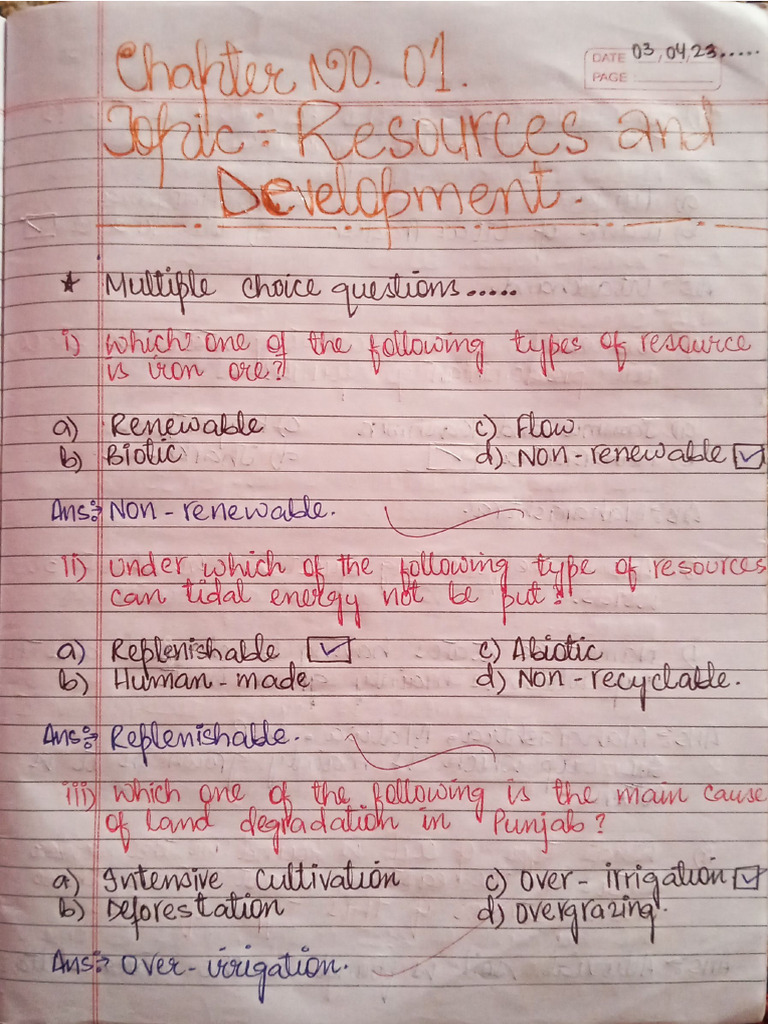 DATE 03,04,23.....
PAGE
Chapter NO. 01.
Topic ÷ Resources and
Development.
* Multiple choice questions.....
i) which one of the following types of resource
is iron ore?
a) Renewable c) Flow
b) Biotic d) Non-renewable
Ans:- Non-renewable.
ii) under which of the following type of resources
can tidal energy not be put?
a) Replenishable c) Abiotic
b) Human-made d) Non-recyclable.
Ans:- Replenishable.
iii) which one of the following is the main cause
of land degradation in Punjab?
a) Intensive cultivation c) over-irrigation
b) Deforestation d) overgrazing.
Ans:- over-irrigation.